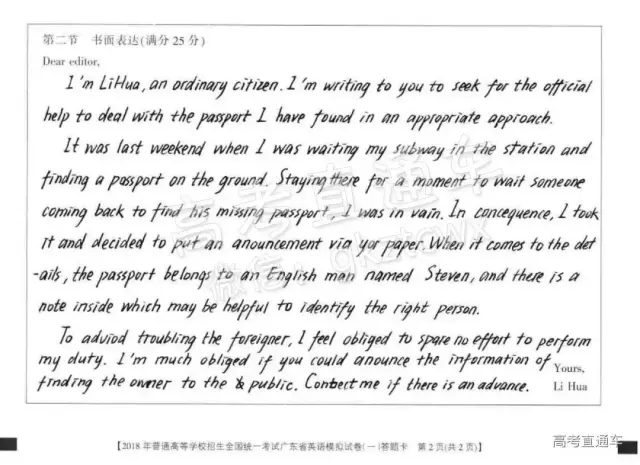 第二节 书面表达(满分25分)
Dear editor,
I'm LiHua, an ordinary citizen. I'm writing to you to seek for the official
help to deal with the passport I have found in an appropriate approach.
It was last weekend when I was waiting my subway in the station and
finding a passport on the ground. Staying there for a moment to wait someone
coming back to find his missing passport, I was in vain. In concequence, I took
it and decided to put an anouncement via your paper. When it comes to the det
-ails, the passport belongs to an English man named Steven, and there is a
note inside which may be helpful to identify the right person.
To adviod troubling the foreigner, I feel obliged to spare no effort to perform
my duty. I'm much obliged if you could anounce the information of
finding the owner to the public. Contect me if there is an advance.
Yours,
Li Hua
【2018年普通高等学校招生全国统一考试广东省英语模拟试卷(一)答题卡 第2页(共2页)】
高考直通车
微信: gkztcwx
高考直通车